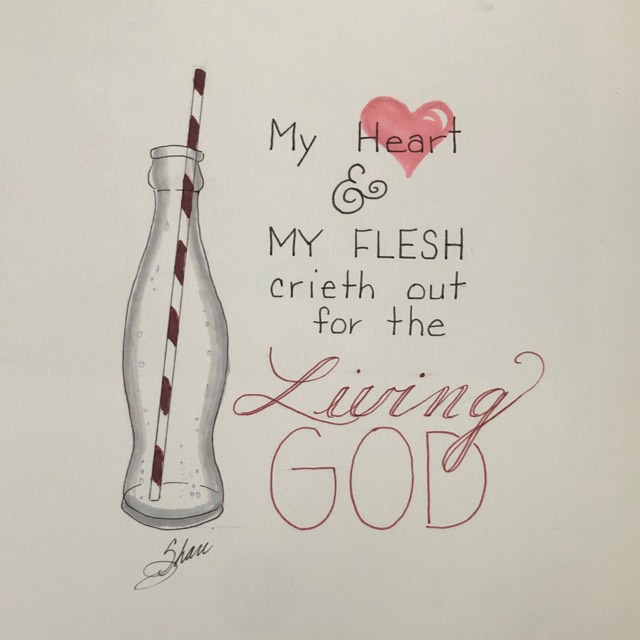 My Heart
&
MY FLESH
crieth out
for the
Living
GOD
Shari